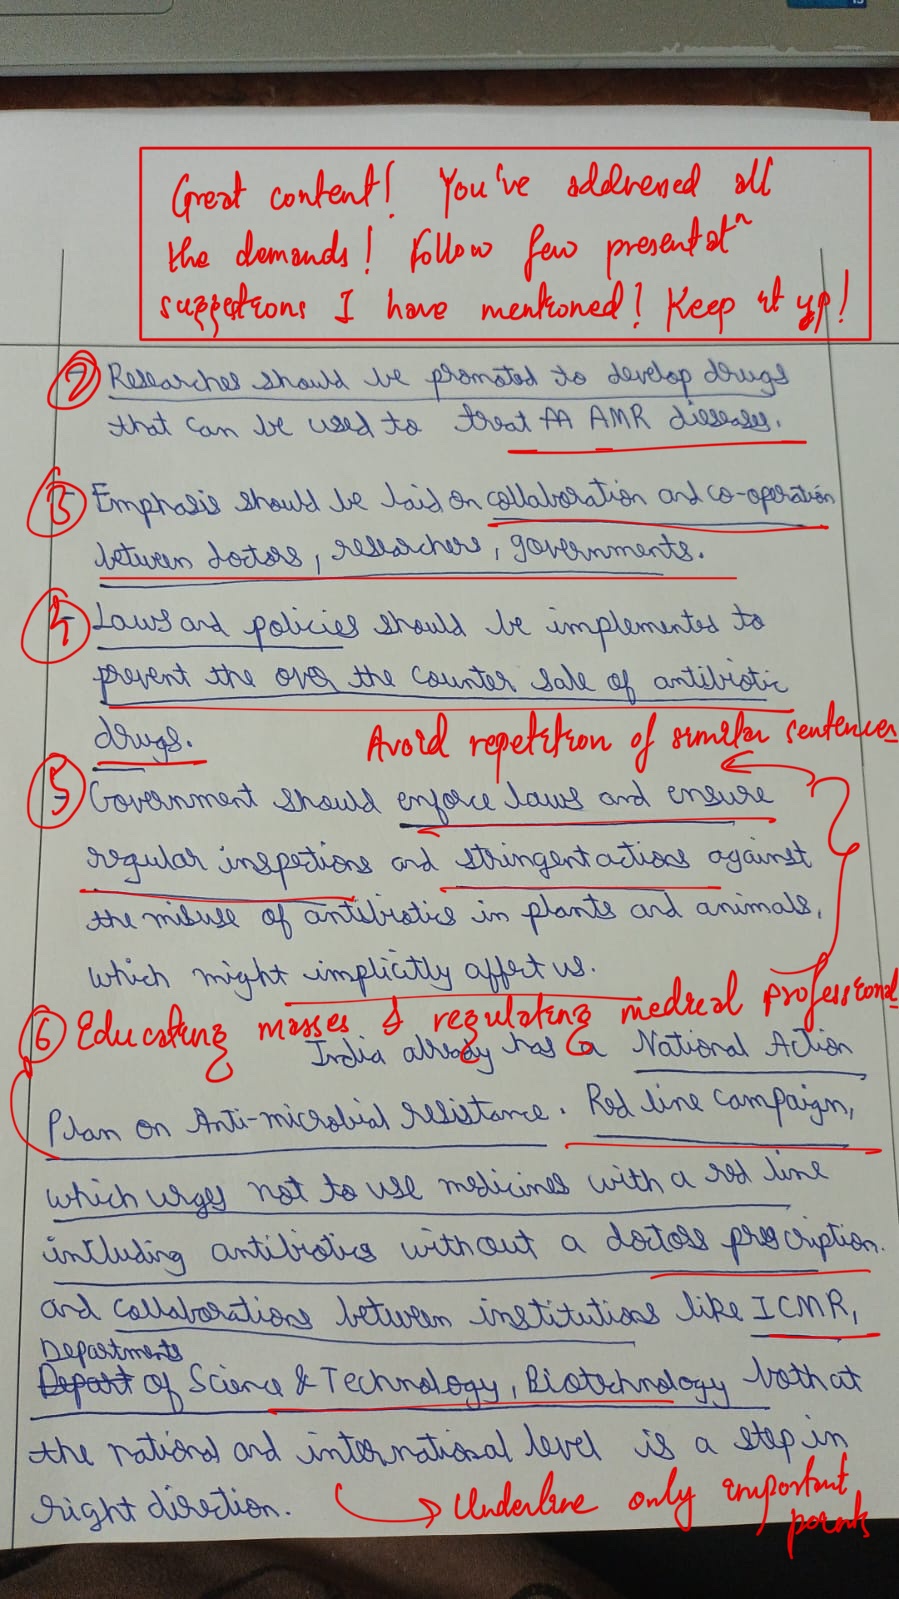 Great content! You've addressed all
the demands! Follow few presentatⁿ
suggestions I have mentioned! Keep it up!
② Researches should be promoted to develop drugs
that can be used to treat AMR diseases.
③ Emphasis should be laid on collaboration and co-operation
between doctors, researchers, governments.
④ Laws and policies should be implemented to
prevent the over the counter sale of antibiotic
drugs.
Avoid repetition of similar sentences
⑤ Government should enforce laws and ensure
regular inspections and stringent actions against
the misuse of antibiotics in plants and animals,
which might implicitly affect us.
⑥ Educating masses & regulating medical professional
India already has a National Action
Plan on Anti-microbial resistance. Red line campaign,
which urges not to use medicines with a red line
including antibiotics without a doctors prescription.
and collaborations between institutions like ICMR,
Departments
Depart of Science & Technology, Biotechnology both at
the national and international level is a step in
right direction.
→ Underline only important
points